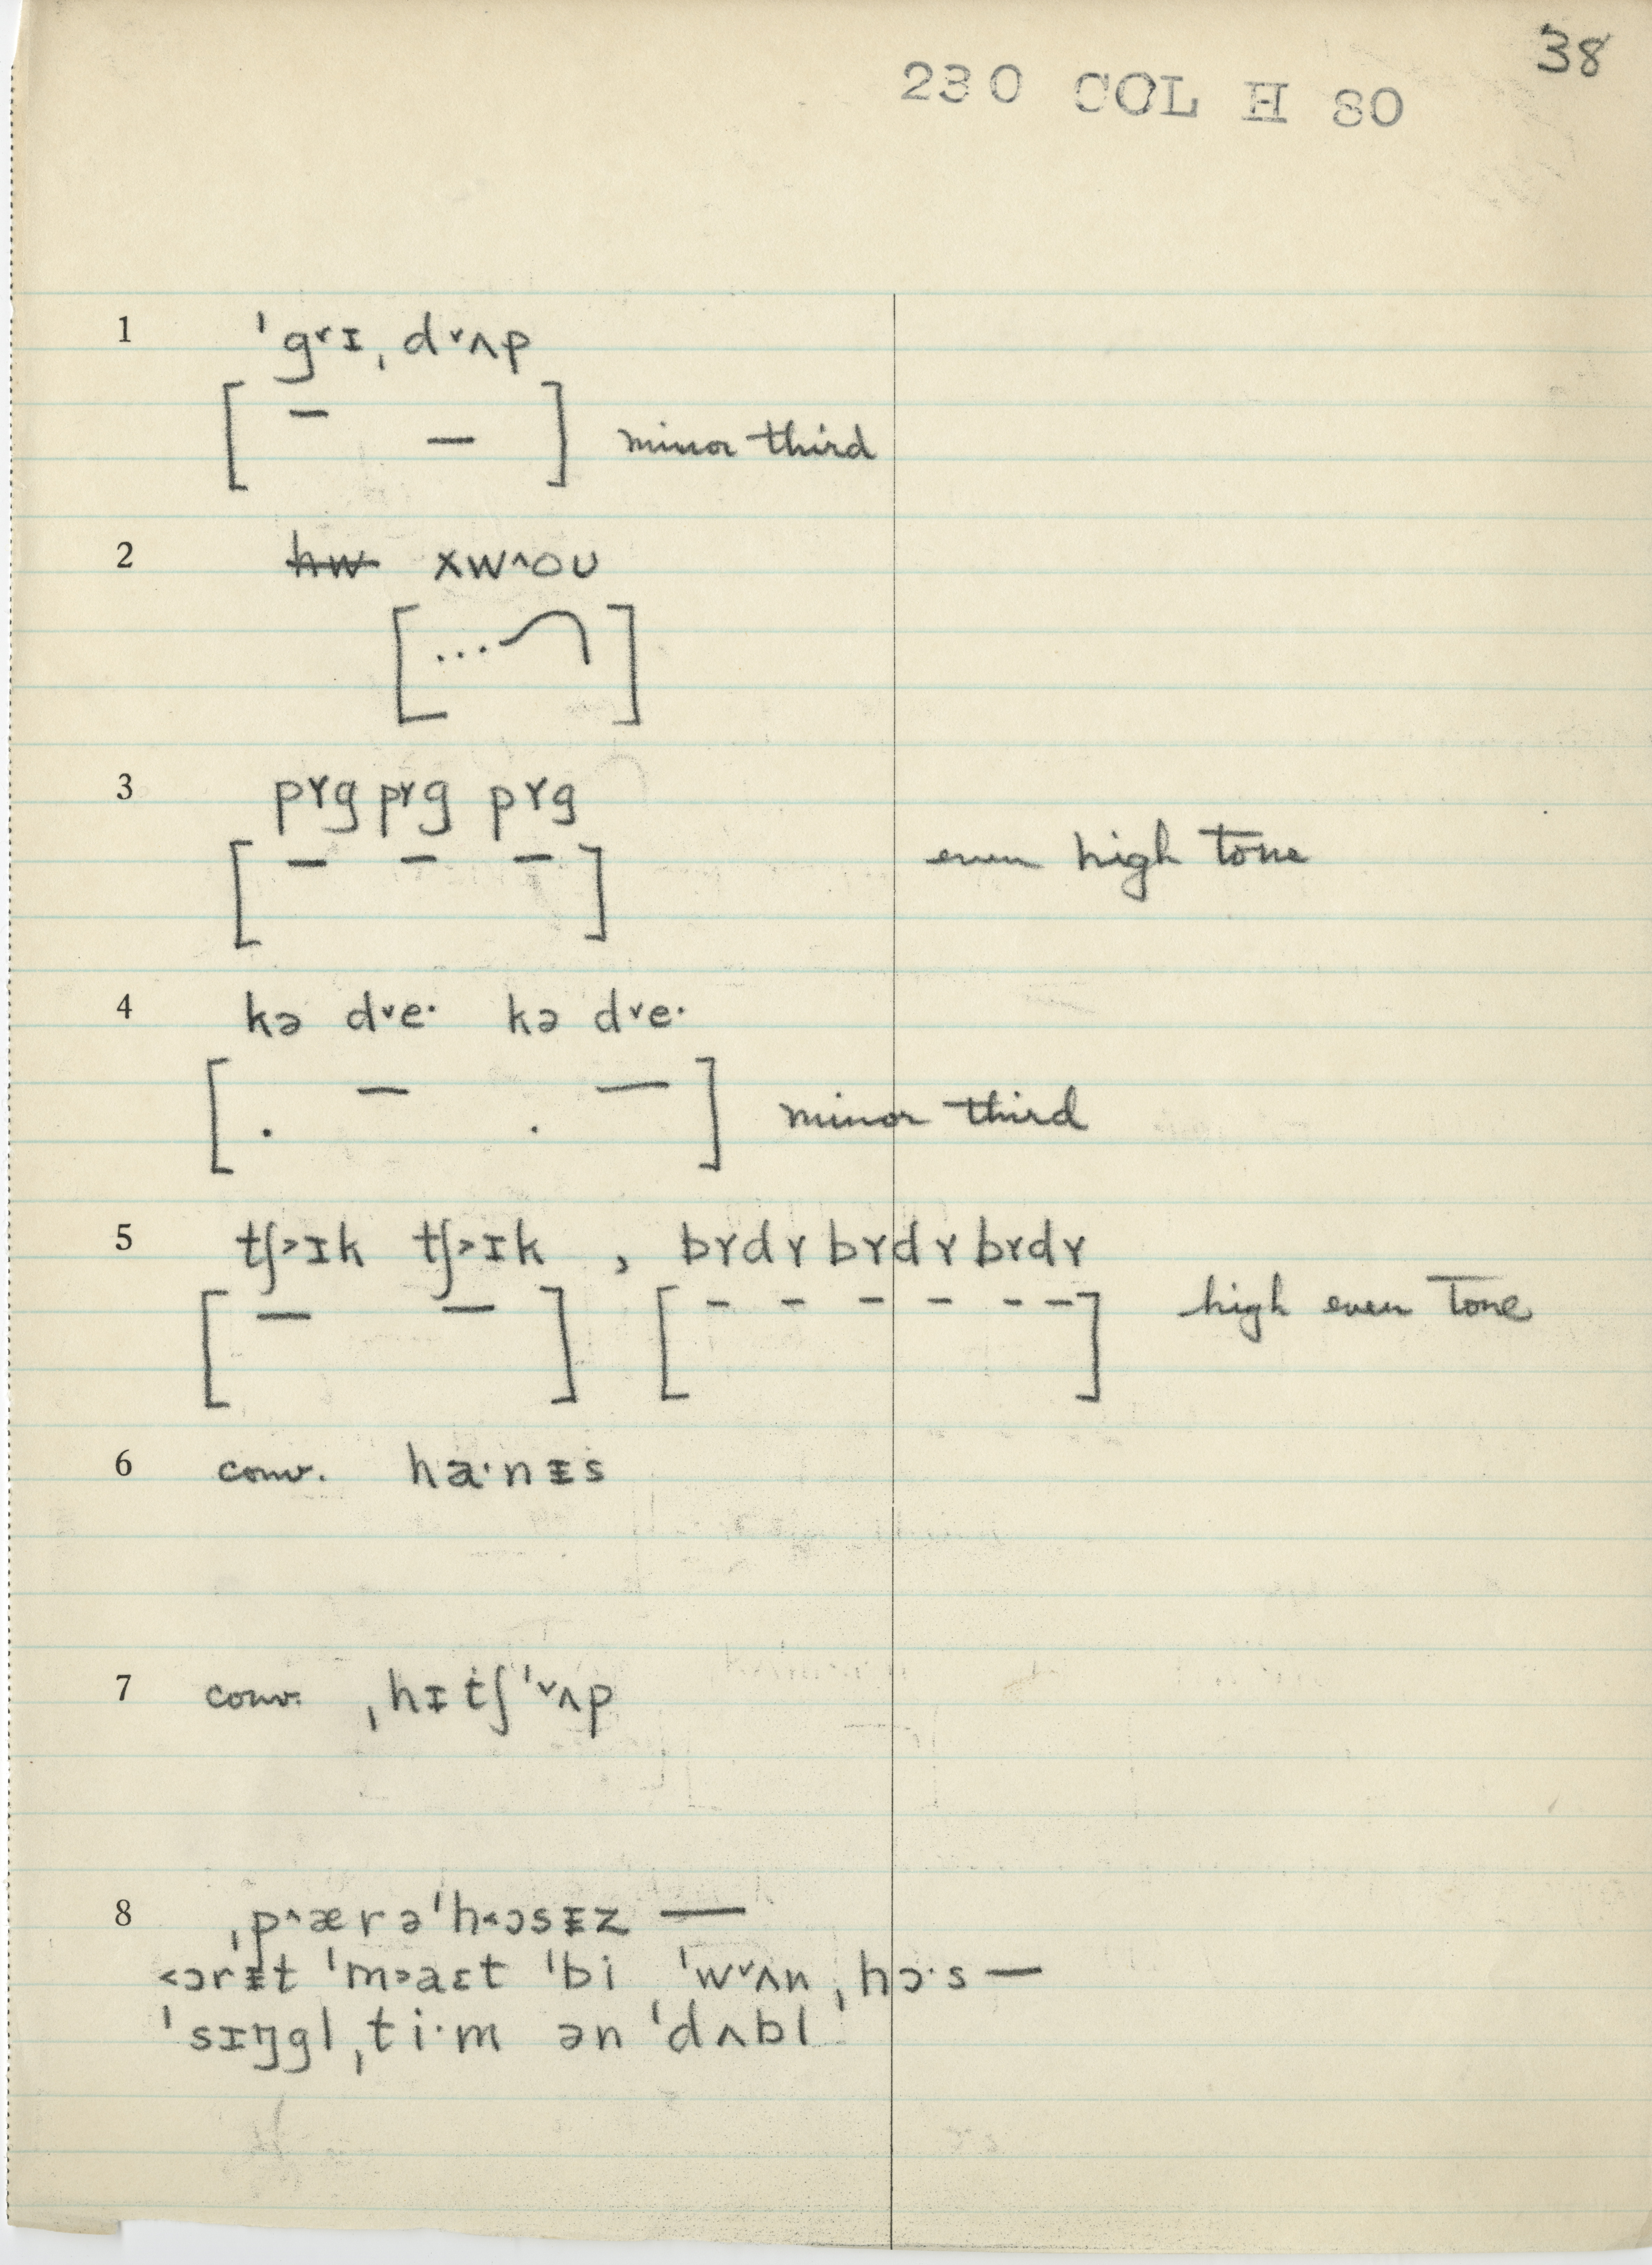 38
230 COL H 80
1 ˈg˅ɪˌd˅ʌp
[ – – ] minor third
2 ~~hw~~ xw˄oʊ
[ ... ]
3 pɤg pɤg pɤg
[ – – – ] even high tone
4 kə d˅e· kə d˅e·
[ . – . — ] minor third
5 tʃ˃ɪk tʃ˃ɪk , bɤdɤ bɤdɤ bɤdɤ
[ — — ] [ - - - - - - ] high even tone
6 conv. ha·nᵻs
7 conv. ˌhɪtʃˈ˅ʌp
8 ˌp˄ærəˈh˂ɔsᵻz —
˂ɔrᵻt ˈm˃aɛt ˈbi ˈw˅ʌn ˌhɔ·s —
ˈsɪŋgl ˌti·m ən ˈdʌbl